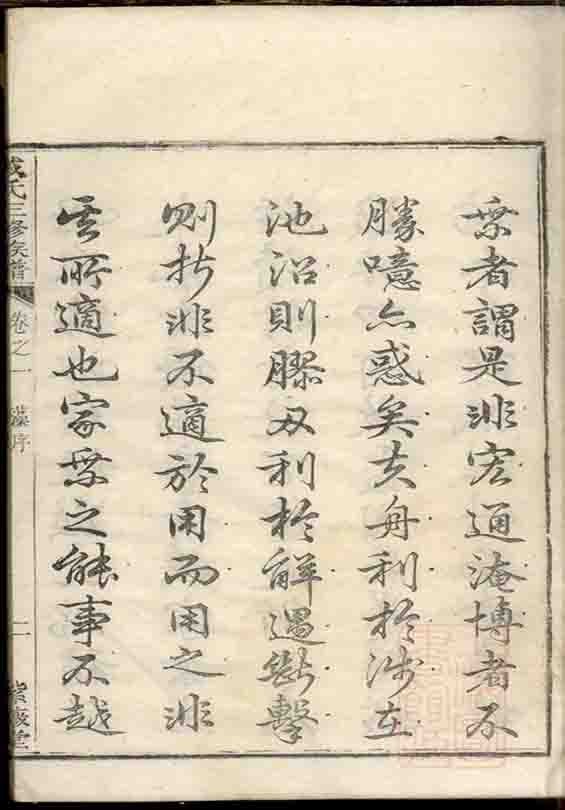 乘者謂是非宏通淹博者不
勝噫亦惑矣夫舟利於涉在
池沼則膠刃利於解遇斷擊
則折非不適於用而用之非
其所適也家乘之能事不越
氏三修族譜 卷之一 序 二 紫薇堂